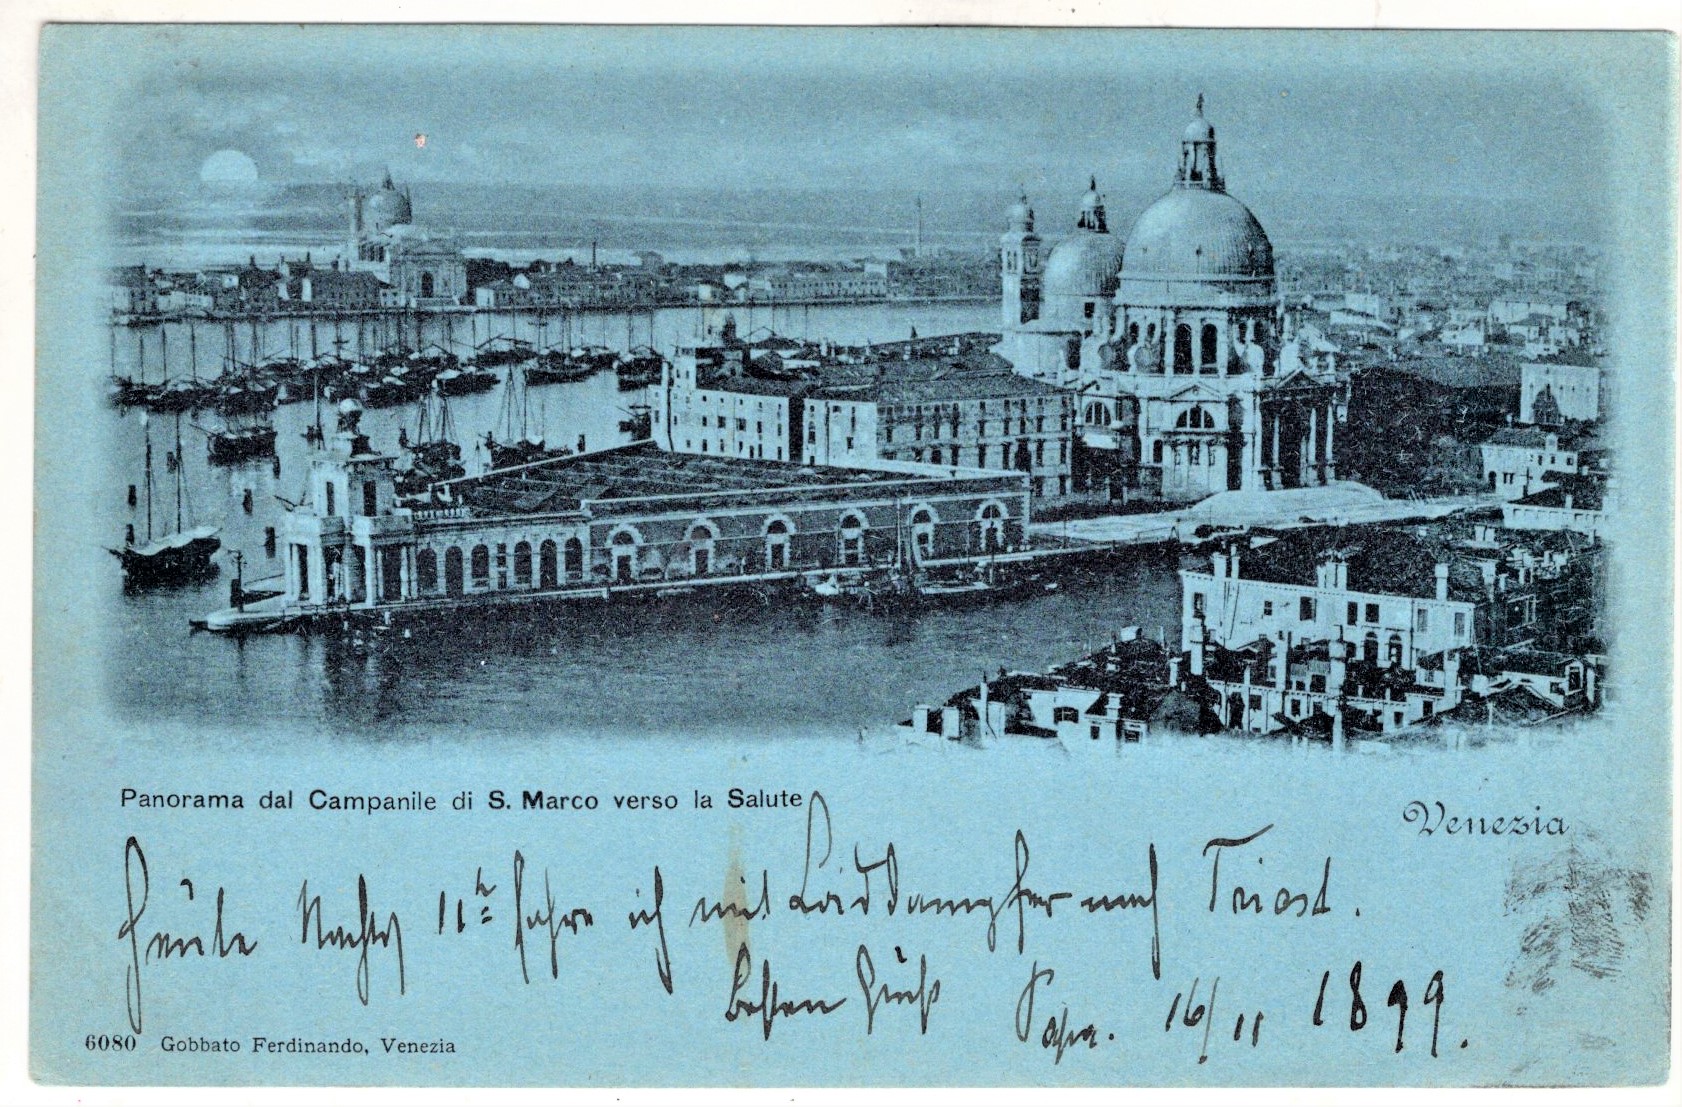 Panorama dal Campanile di S. Marco verso la Salute
Venezia
Heute Nachts 11h fahre ich mit Loiddampfer nach Triest.
Besten Gruß Papa. 16/11 1899.
6080 Gobbato Ferdinando, Venezia